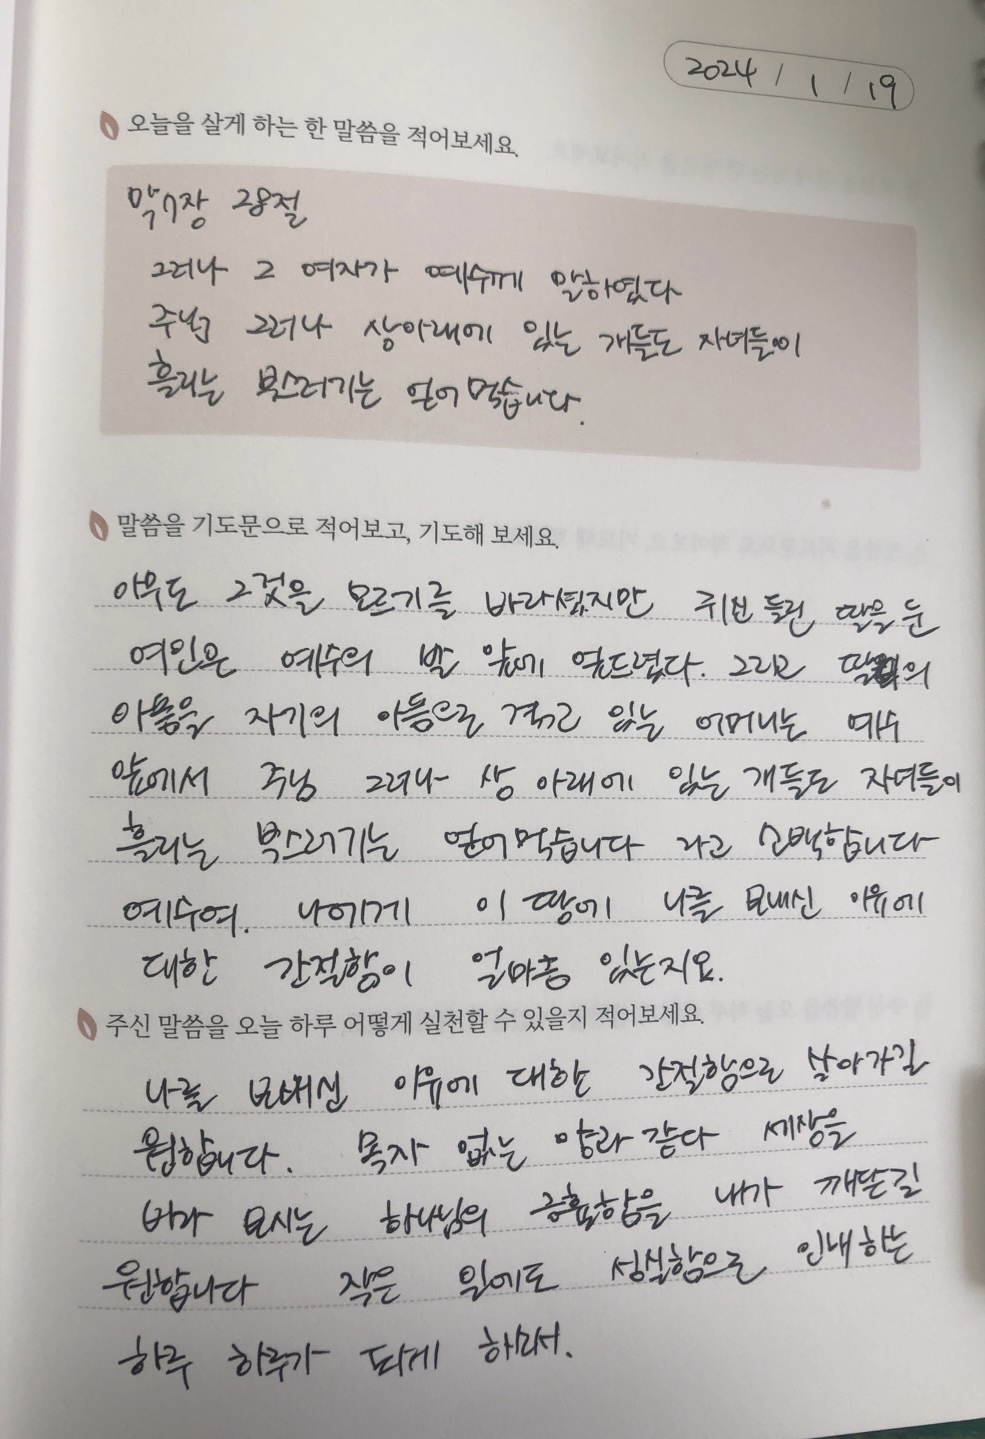 2024 / 1 / 19
오늘을 살게 하는 한 말씀을 적어보세요.
막 7장 28절
그러나 그 여자가 예수께 말하였다
주님 그러나 상아래에 있는 개들도 자녀들이
흘리는 부스러기는 얻어 먹습니다.
말씀을 기도문으로 적어보고, 기도해 보세요.
아무도 그것을 모르기를 바라셨지만 귀신 들린 딸을 둔
여인은 예수의 발 앞에 엎드렸다. 그리고 딸의
아픔을 자기의 아픔으로 겪고 있는 어머니는 예수
앞에서 주님 그러나 상 아래에 있는 개들도 자녀들이
흘리는 부스러기는 얻어먹습니다 라고 고백합니다
예수여. 나에게 이 땅에 나를 보내신 이유에
대한 간절함이 얼마큼 있는지요.
주신 말씀을 오늘 하루 어떻게 실천할 수 있을지 적어보세요.
나를 보내신 이유에 대한 간절함으로 살아가길
원합니다. 목자 없는 양과 같다 세상을
바라 보시는 하나님의 긍휼함을 내가 깨닫길
원합니다 작은 일에도 성실함으로 인내하는
하루 하루가 되게 하소서.